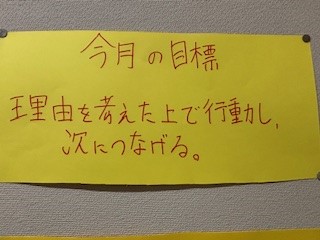 今月の目標
理由を考えた上で行動し,
次につなげる。